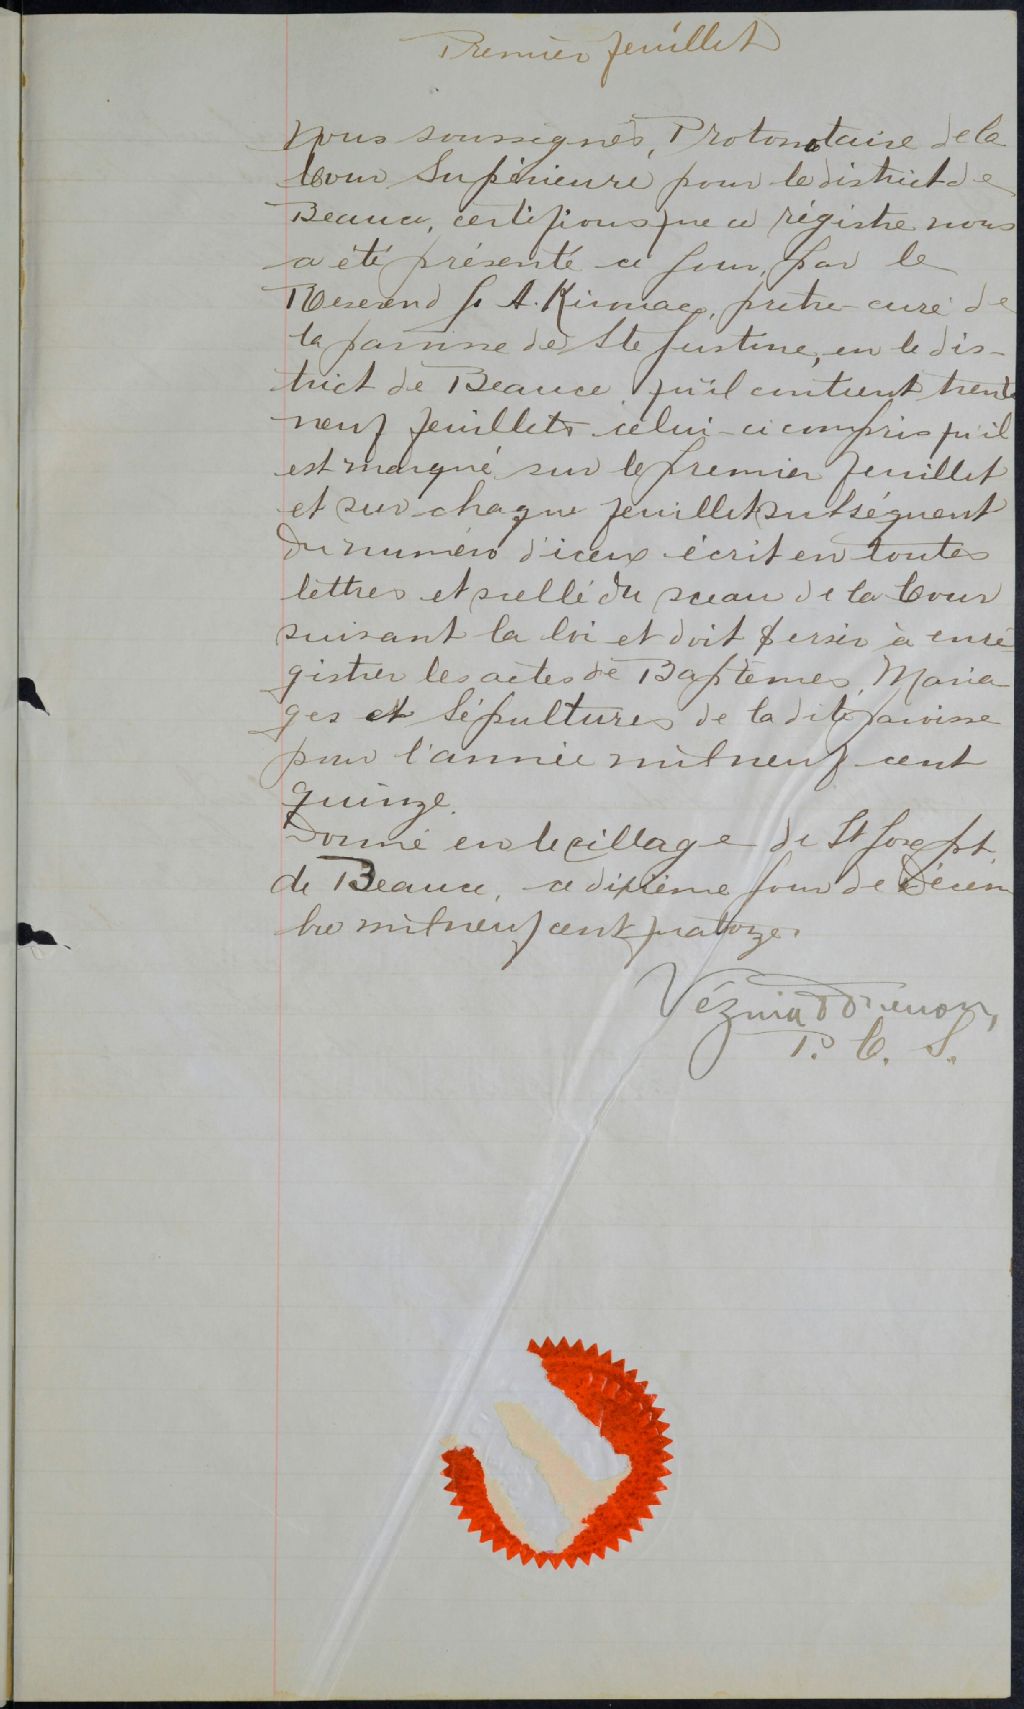 Premier feuillet
Nous soussignés, Protonotaire de la
Cour Supérieure pour le district de
Beauce, certifions que ce régistre nous
a été présenté ce jour, par le
Révérend J. A. Kirouac, prêtre-curé de
la paroisse de Ste Justine, en le dis-
trict de Beauce, qu'il contient trente
neuf feuillets celui-ci compris qu'il
est marqué sur le premier feuillet
et sur chaque feuillet subséquent
du numéro d'iceux écrit en toutes
lettres et scellé du sceau de la Cour
suivant la loi et doit servir à enré
gistrer les actes de Baptêmes, Maria-
ges et Sépultures de la dite paroisse
pour l'année mil neuf cent
quinze.
Donné en le village de St Joseph
de Beauce, ce dixième jour de Décem
bre mil neuf cent quatorze.
Vézina
P. C. S.